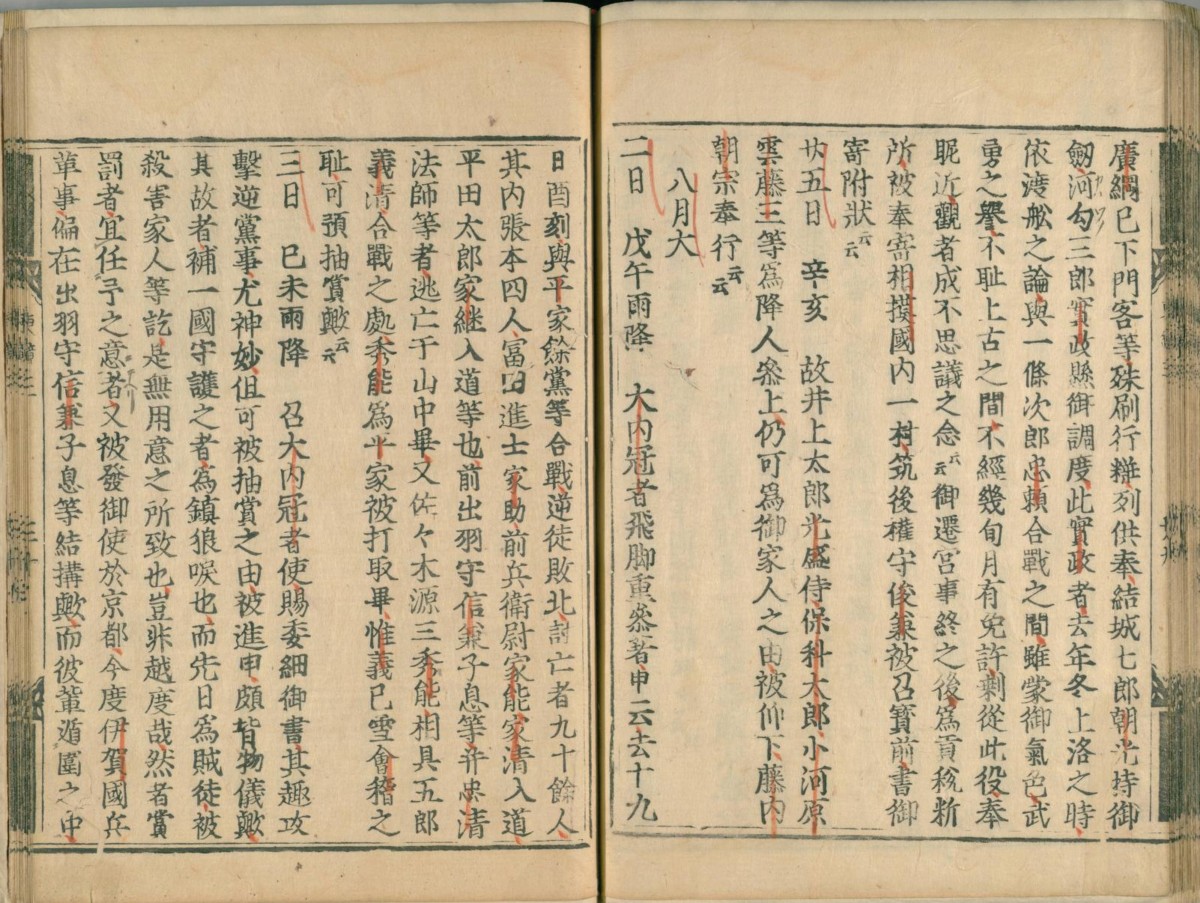 廣綱已下門客等殊刷行粧列供奉結城七郎朝光持御
劔河勾三郎實政縣御調度此實政者去年冬上洛之時
依渡舩之論與一條次郎忠頼合戰之間雖蒙御氣色武
勇之譽不耻上古之間不經幾旬月有免許剰從此役奉
昵近觀者成不思議之念云云御遷宮事終之後爲貢税䉼
所被奉寄相摸國内一村筑後權守俊兼被召寳前書御
寄附状云云
廿五日 辛亥 故井上太郎光盛侍保科太郎小河原
雲藤三等爲降人叅上仍可爲御家人之由被仰下藤内
朝宗奉行云云
八月大
二日 戊午雨降 大内冠者飛脚重叅著申云去十九
日酉刻與平家餘黨等合戰逆徒敗北討亡者九十餘人
其内張本四人富田進士家助前兵衛尉家能家清入道
平田太郎家継入道等也前出羽守信兼子息等并忠清
法師等者逃亡于山中畢又佐々木源三秀能相具五郎
義清合戰之處秀能爲平家被打取畢惟義已雪會稽之
耻可預抽賞歟云云
三日 已未雨降 召大内冠者使賜委細御書其趣攻
擊逆黨事尤神妙但可被抽賞之由被進申頗背物儀歟
其故者補一國守護之者爲鎮狼唳也而先日爲賊徒被
殺害家人等訖是無用意之所致也豈非越度哉然者賞
罰者宜任予之意者又被發御使於京都今度伊賀國兵
革事偏在出羽守信兼子息等結搆歟而彼輩遁圍之中